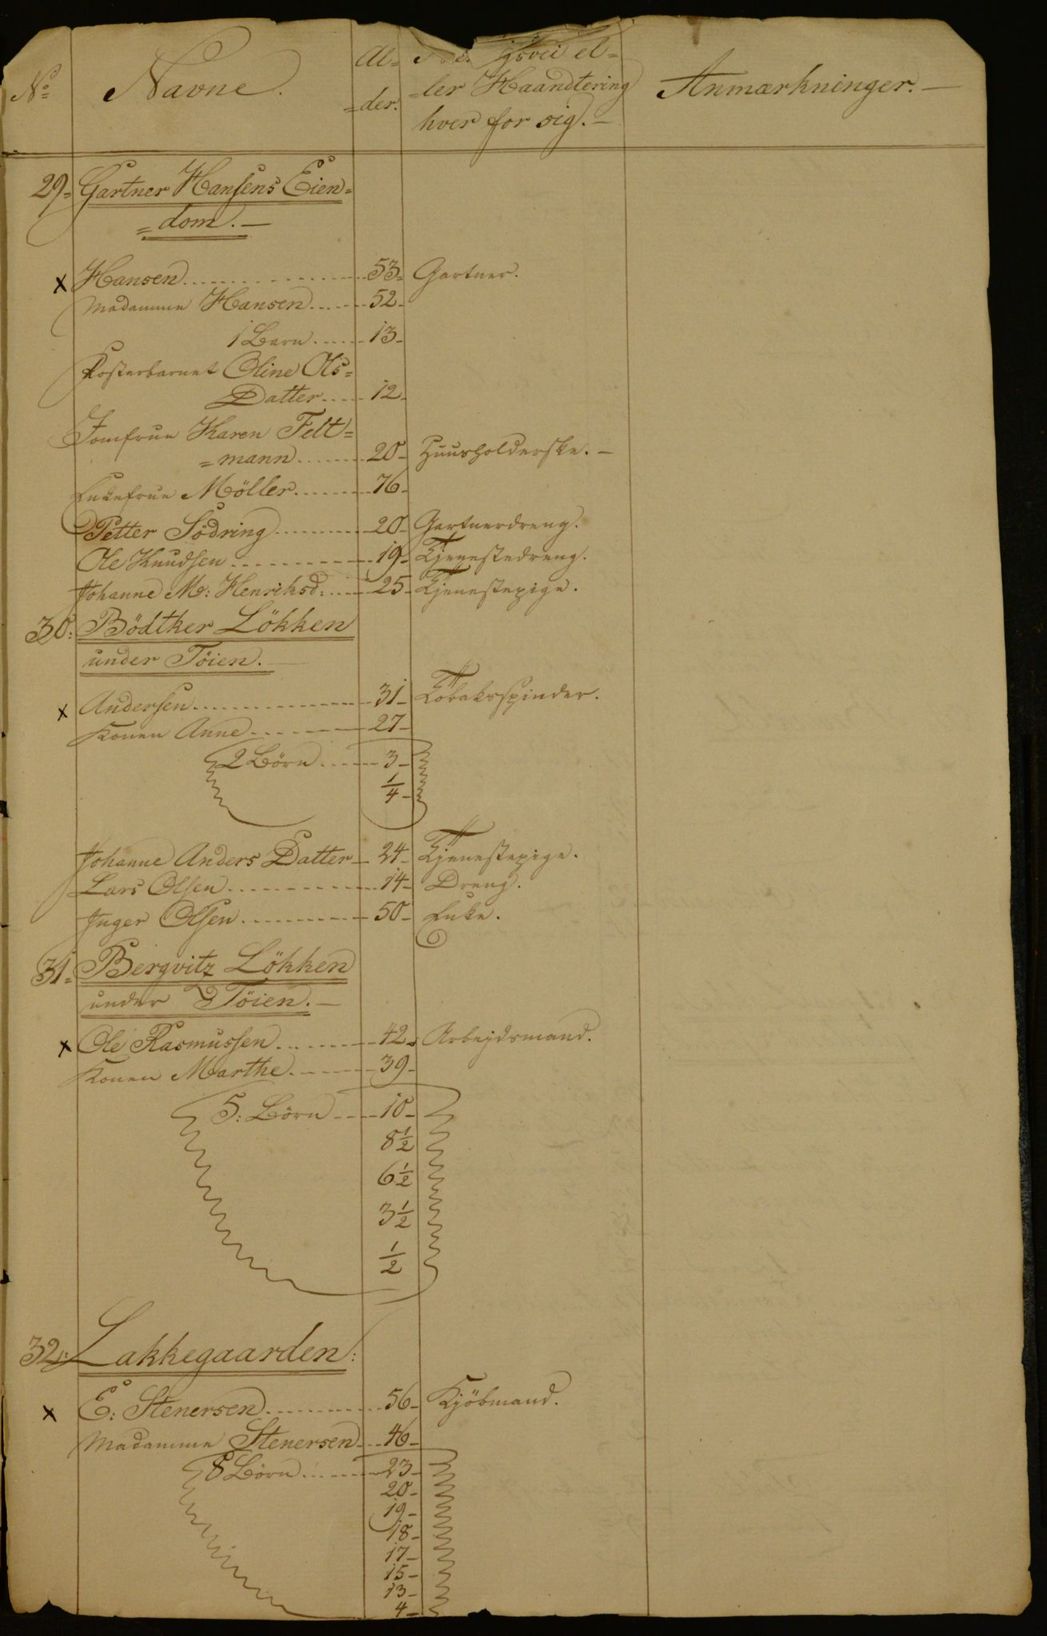 No Navne. Al=
=der. =ler Haandtering
hver for sig. — Anmærkninger. —
29= Gartner Hansens Eien=
=dom. —
x Hansen 53= Gartner.
Madamme Hansen 52-
1 Barn 13-
Fosterbarnet Oline Ols=
Datter 12-
Jomfrue Karen Felt=
=mann 20- Huusholderske. —
Enkefrue Möller 76-
Petter Södring 20- Gartnerdreng.
Ole Knudsen 19- Tjenestedreng.
Johanne M: Henriksd: 25- Tjenestepige.
30: Bödtker Lökken
under Töien. —
x Andersen 31- Tobakspinder.
Konen Anne 27-
2 Börn 3-
1/4-
Johanne Anders Datter 24- Tjenestepige.
Lars Olsen 14- Dreng.
Inger Olsen 50- Enke.
31= Bergvitz Lökken
under Töien. —
x Ole Rasmussen 42- Arbejdsmand.
Konen Marthe 39-
5: Börn 10-
8 1/2
6 1/2
3 1/2
1/2
32: Lakkegaarden:
x E: Stenersen 56- Kjöbmand.
Madamme Stenersen 46-
8 Börn 23-
20-
19-
18-
17-
15-
13-
4-